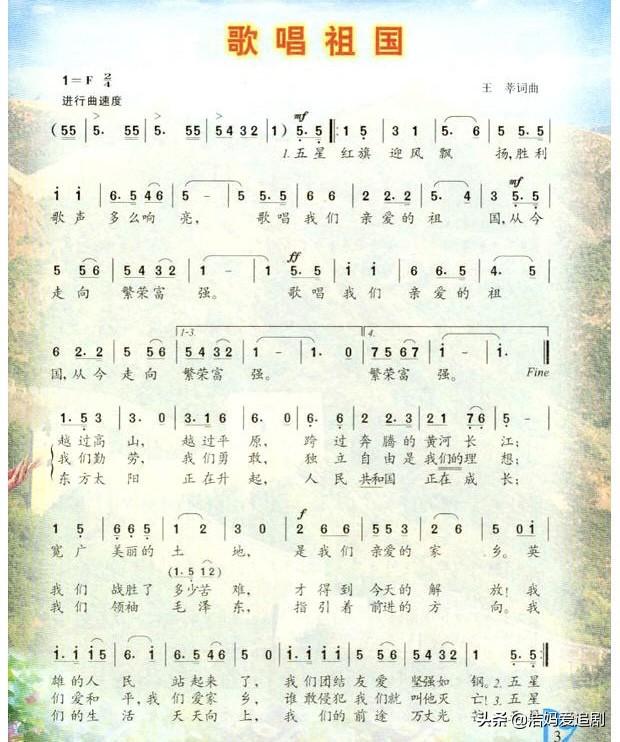 歌唱祖国
1=F 2/4
王 莘词曲
进行曲速度
mf
(55 5. 55 5. 55 5432 1) 5. 5 1 5 3 1 5. 6 5 5. 5
1.五星 红旗 迎风 飘 扬,胜利
mf
1 1 6. 5 46 5 - 5 5. 5 6 6 2 2. 2 5. 4 3 5. 5
歌声 多么响 亮, 歌唱我们 亲爱的祖 国,从今
ff
5 56 5432 1 - 1 5. 5 1 1 6 6. 6 5. 4
走向 繁荣富 强。 歌唱我们 亲爱的祖
1-3. 4.
6 2. 2 5 56 5432 1 - 1. 0 7567 1 - 1.
国,从今走向 繁荣富 强。 繁荣富 强。 Fine
1. 53 3. 0 3. 16 6. 0 6. 6 2 2. 3 21 76 5 -
越过高 山, 越过平 原, 跨过奔 腾的黄河长 江;
我们勤 劳, 我们勇 敢, 独立自由是我们的理 想;
东方太 阳 正在升 起, 人民共和国 正在成 长;
f
1 5 665 1 2 3 0 2 66 553 2 6 5 01
宽广 美丽的 土 地, 是我们 亲爱的 家 乡。英
(1. 5 12)
我们 战胜了 多少苦 难, 才得到 今天的 解 放!我
我们 领袖 毛泽东, 指引着 前进的 方 向。我
1. 1 15 6. 1 6. 5 46 5 0 1111 5 56 5432 1 5. 5
雄的人 民 站起来 了, 我们团结友爱 坚强如 钢。2.五星
们爱和 平,我 们爱家 乡, 谁敢侵犯我们就叫他灭 亡!3.五星
们的生 活 天天向 上, 我们的前途 万丈光
头条@后妈爱追剧
3